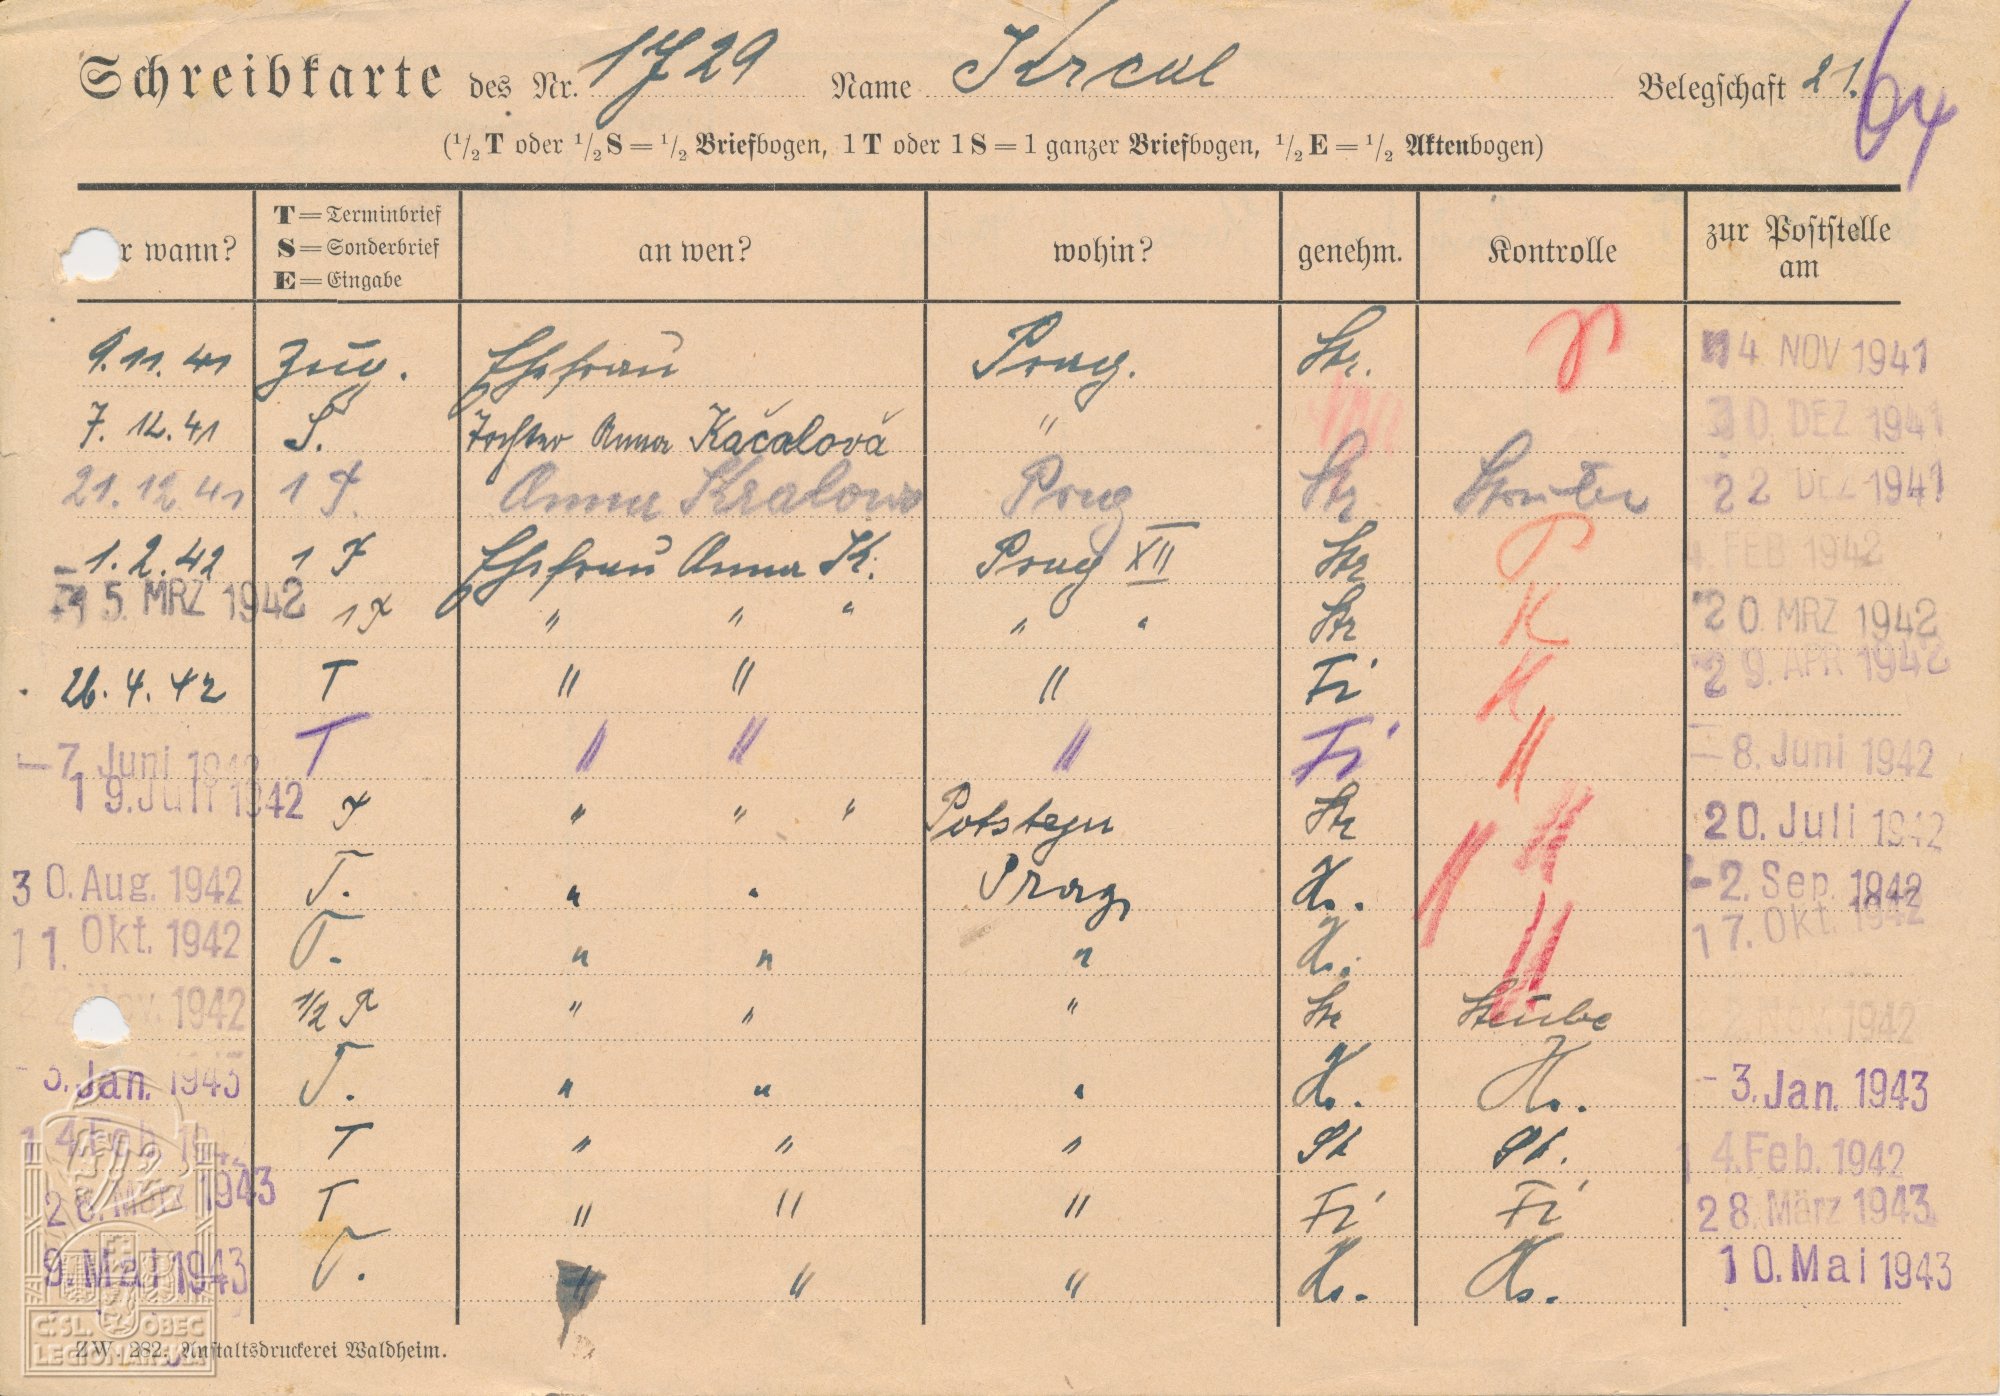 Schreibkarte des Nr. 1729 Name Krcal Belegschaft 21. 64
(½ T oder ½ S = ½ Briefbogen, 1 T oder 1 S = 1 ganzer Briefbogen, ½ E = ½ Aktenbogen)
r wann? T = Terminbrief S = Sonderbrief E = Eingabe an wen? wohin? genehm. Kontrolle zur Poststelle am
9.11.41 Zug. Ehefrau Prag. Str. 4 NOV 1941
7.12.41 S. Tochter Anna Kačalová " 0 DEZ 1941
21.12.41 1 T. Anna Kralowa Prag Str 22 DEZ 1941
1.2.42 1 T Ehefrau Anna K. Prag XII Str 4. FEB 1942
15. MRZ 1942 1 T " " " " " Str K 20. MRZ 1942
26.4.42 T " " " Fi K 29. APR 1942
-7. Juni 1942 T " " " Fi 8. Juni 1942
19. Juli 1942 T " " " Potstejn Str 20. Juli 1942
30. Aug. 1942 T. " " Prag, H. -2. Sep. 1942
11. Okt. 1942 T. " " " H. 17. Okt. 1942
22 Nov. 1942 1/2 T " " " Str Steube Nov. 1942
3. Jan. 1943 T. " " " H. H. -3. Jan. 1943
14 Feb. 1942 T " " " St. St. 14. Feb. 1942
28. März 1943 T " " " Fi Fi 28. März 1943
9. Mai 1943 T. " " " H. H. 10. Mai 1943
Č.SL. OBEC
LEGIONÁŘSKÁ
ZW. 282. Anstaltsdruckerei Waldheim.